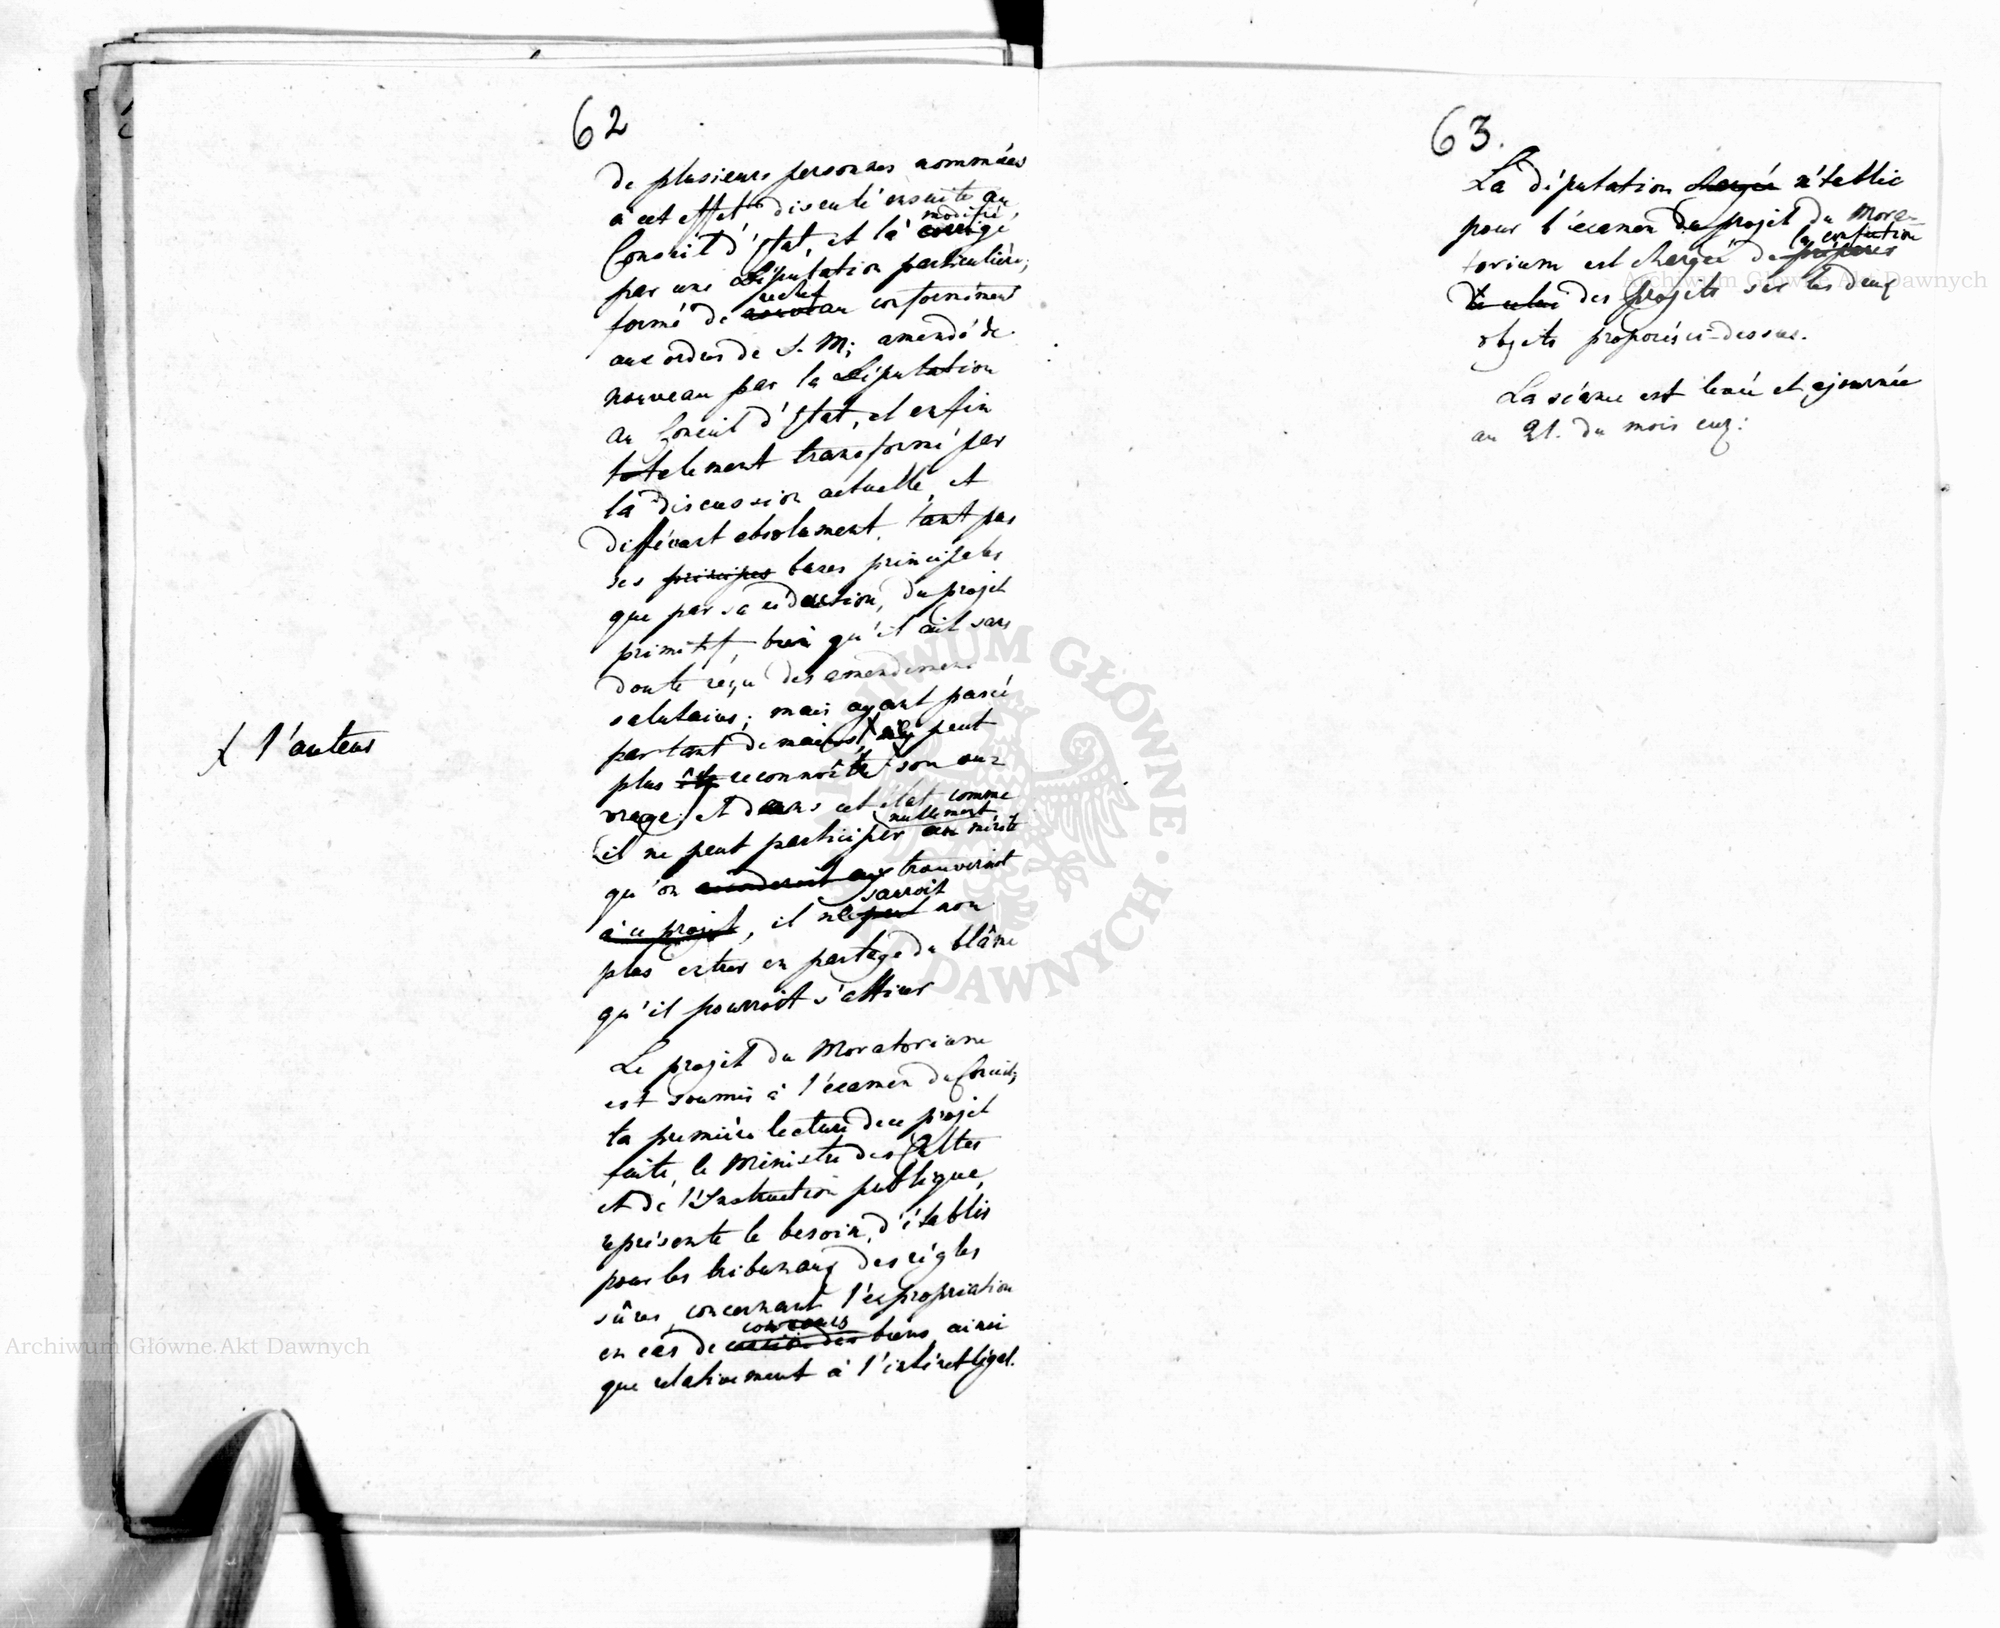 62
de plusieurs personnes nommées
à cet effet discuté ensuite au
modifié
Conseil d'Etat, et là corrigé
par une Députation particulière;
formé de nouveau conformément
aux ordres de S. M; amendé de
nouveau par la Députation
au Conseil d'Etat, et enfin
totalement transformé par
la discussion actuelle, et
différant absolument, tant par
ses principes bases principales
que par sa rédaction, du projet
primitif, bien qu'il ait sans
doute reçu des amendemens
salutaires; mais ayant passé
par tant de mains, peut
plus reconnoître son ouv
rage; et dans cet état comme
nullement
il ne peut participer au mérite
qu'on trouveroit
sauroit
à ce projet, il ne peut non
plus entrer en partage du blâme
qu'il pourroit s'attirer
Le projet du Moratorium
est soumis à l'examen du Conseil;
la première lecture de ce projet
faite, le Ministre des Cultes
et de l'Instruction publique,
représente le besoin, d'établir
pour les tribunaux des règles
sûres, concernant l'expropriation
concours
en cas de cession des biens, ainsi
que relativement à l'intérêt légal.
⁒ l'auteur
63.
La députation chargée rétablie
pour l'examen du projet du Mora-
la confection
torium est chargée de préparer
des projets sur les deux
objets proposés ci-dessus.
La séance est levée et ajournée
au 21. du mois cur:
Archiwum Główne Akt Dawnych
Archiwum Główne Akt Dawnych
ARCHIWUM GŁÓWNE AKT DAWNYCH